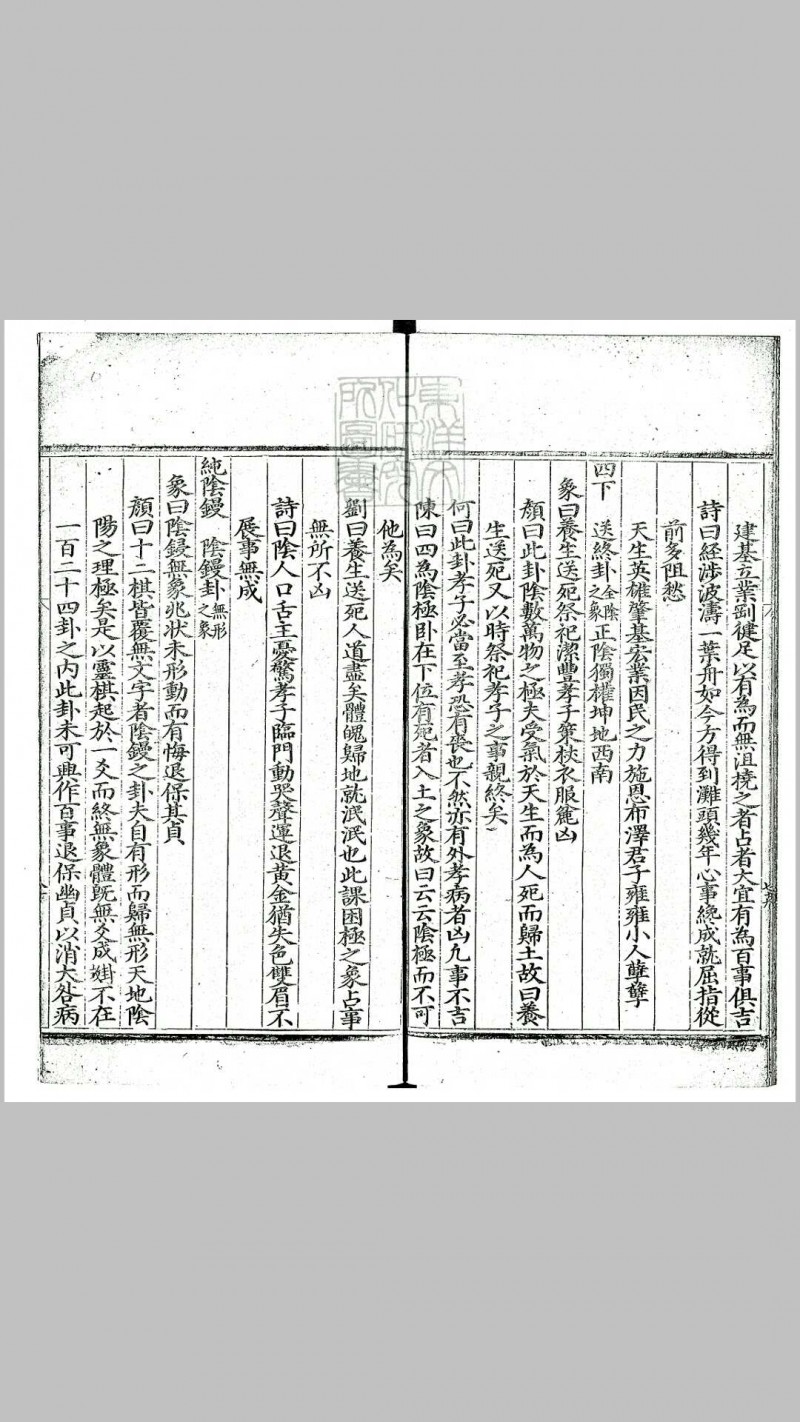 建基立業剛健足以有為而無沮撓之者占者大宜有為百事俱吉
詩曰經涉波濤一葉舟如今方得到灘頭幾年心事纔成就屈指從
前多阻愁
天生英雄肇基宏業因民之力施恩布澤君子雍雍小人孽孽
四下 送終卦 全陰之象 正陰獨權坤地西南
象曰養生送死祭祀潔豐孝子策杖衣服麄凶
顏曰此卦陰數萬物之極夫受氣於天生而為人死而歸土故曰養
生送死又以時祭祀孝子之事親終矣
何曰此卦孝子必當至孝恐有喪也不然亦有外孝病者凶凡事不吉
陳曰四為陰極卧在下位有死者入土之象故曰云云陰極而不可
他為矣
劉曰養生送死人道盡矣體魄歸地就泯泯也此課困極之象占事
無所不凶
詩曰陰人口舌主憂驚孝子臨門動哭聲運退黃金猶失色雙眉不
展事無成
純陰鏝 陰鏝卦 無形之象
象曰陰鏝無象兆狀未形動而有悔退保其貞
顏曰十二棋皆覆無文字者陰鏝之卦夫自有形而歸無形天地陰
陽之理極矣是以靈棋起於一爻而終無象體既無爻成卦不在
一百二十四卦之內此卦未可興作百事退保幽貞以消大咎病